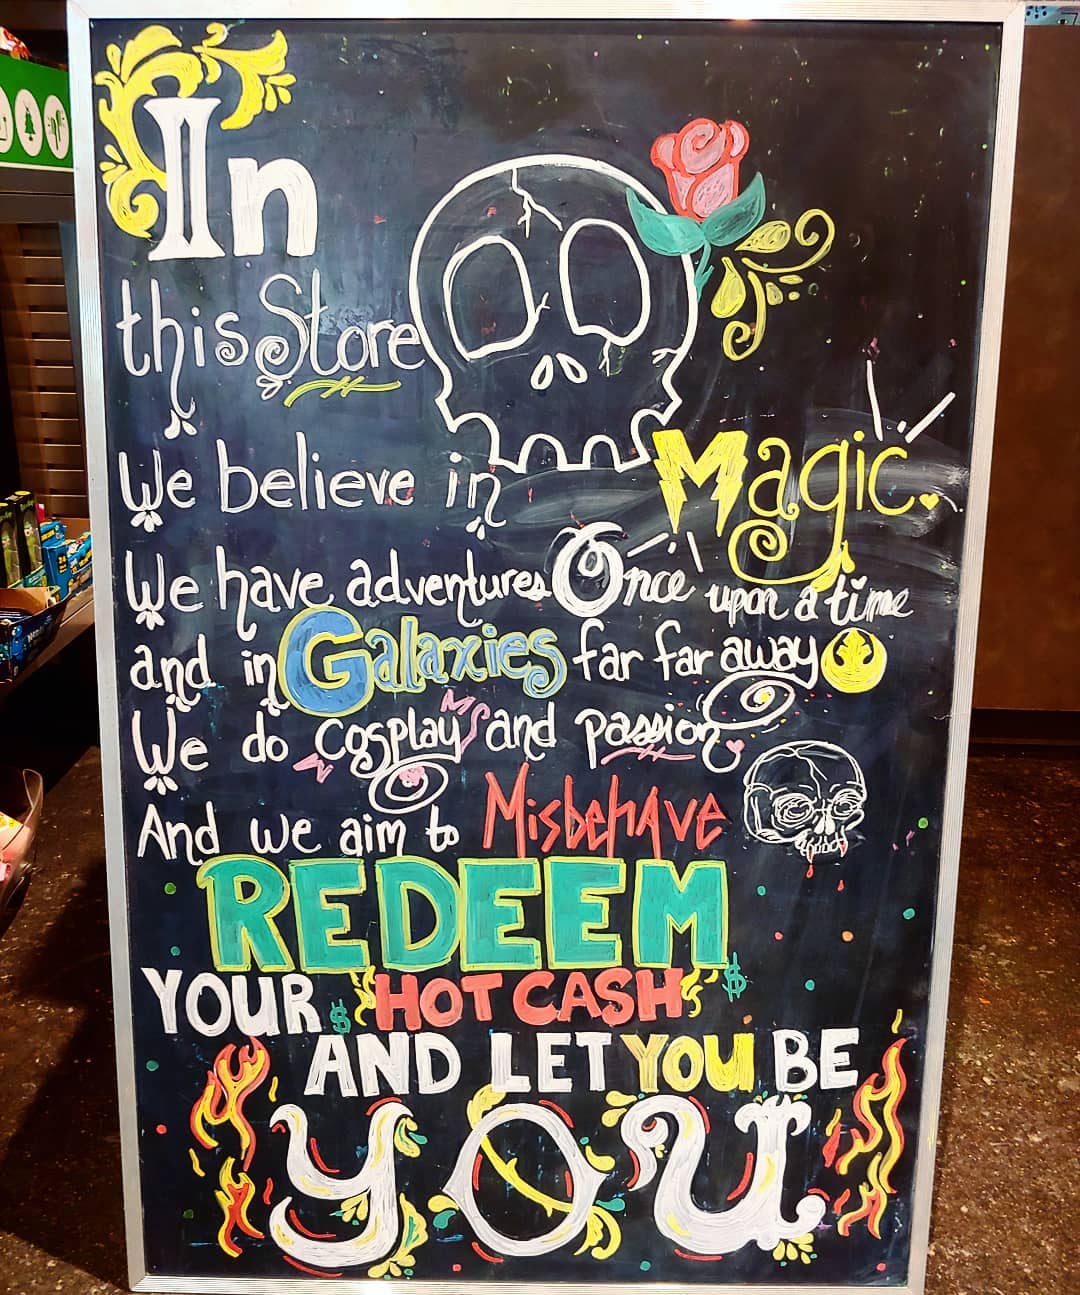 In
this Store
We believe in Magic.
We have adventures Once upon a time
and in Galaxies far far away
We do cosplay and passion
And we aim to Misbehave
REDEEM
YOUR $ HOT CASH $
AND LET YOU BE
YOU